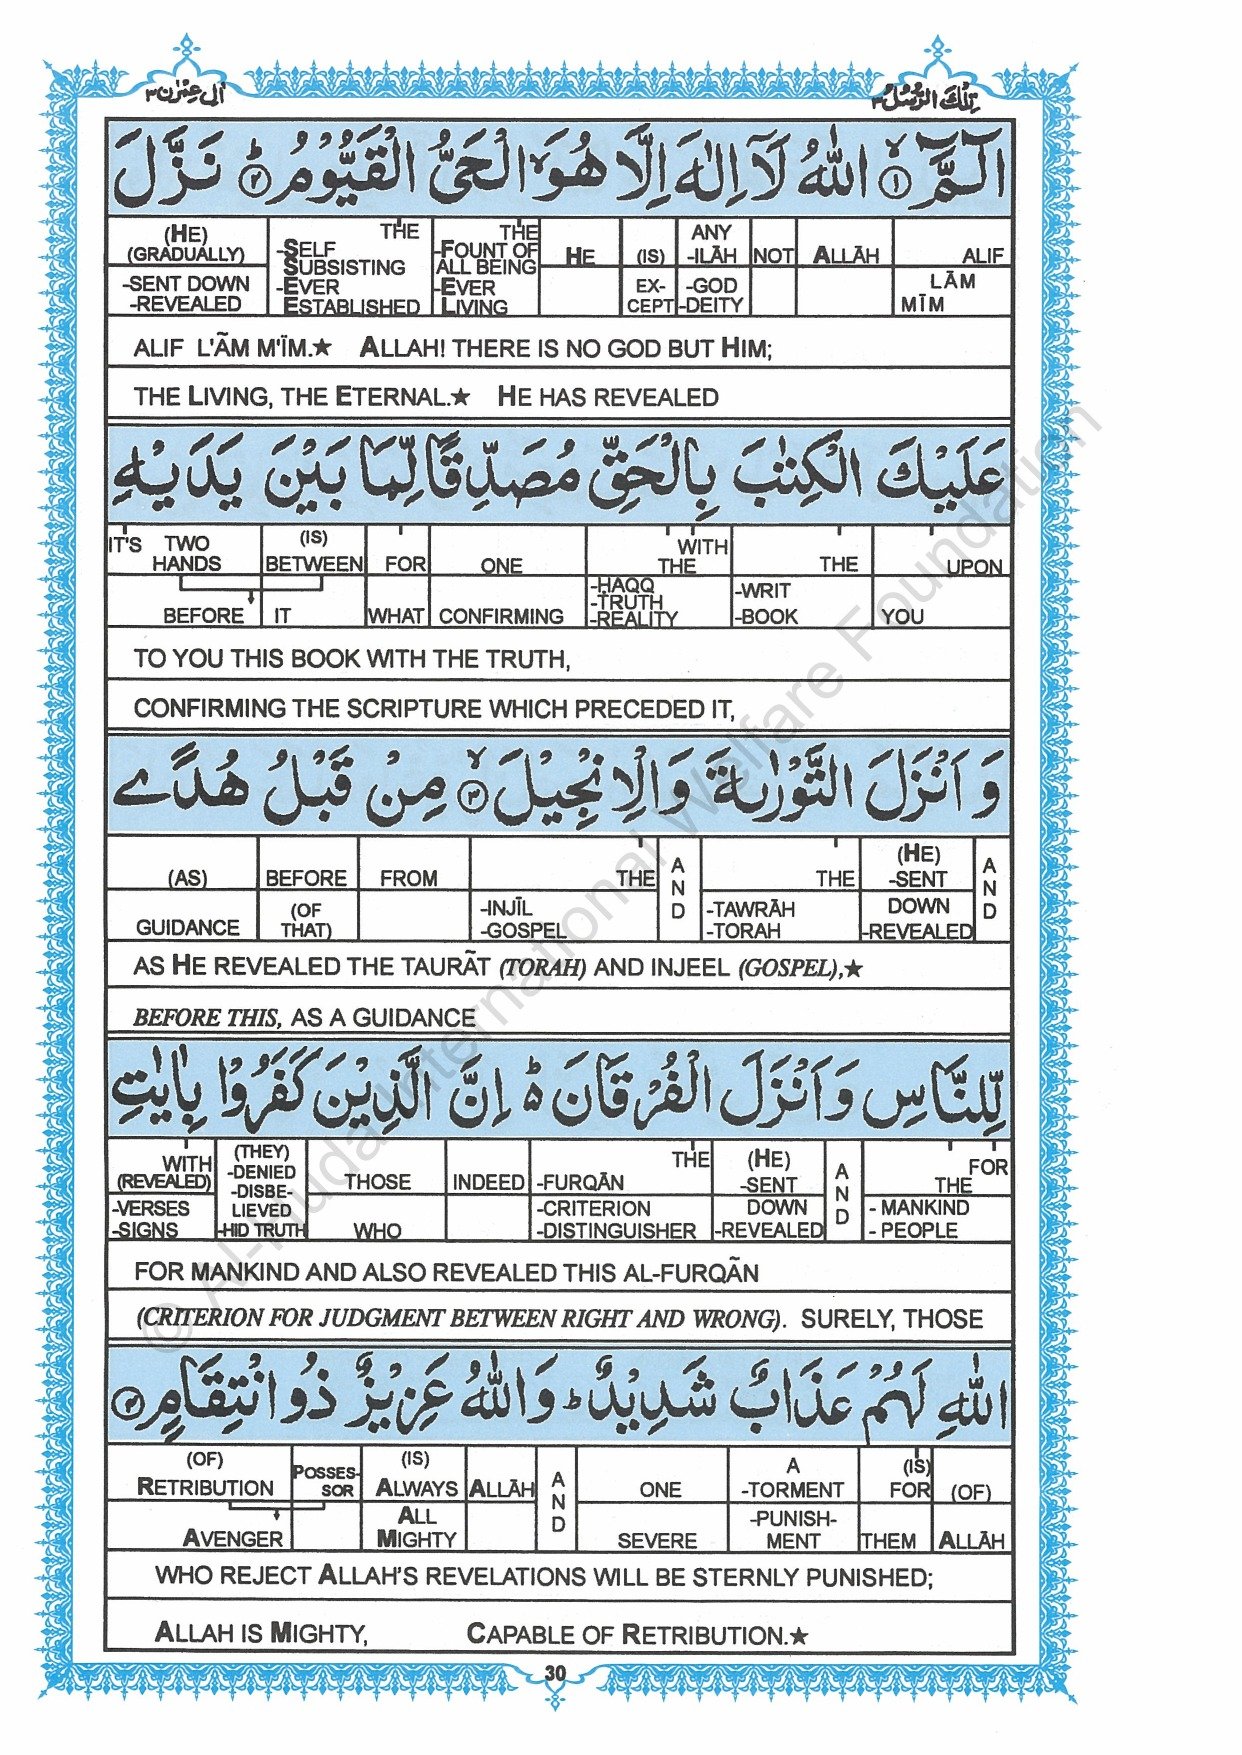 اٰلِ عِمْرٰن ٣
تِلْكَ الرُّسُلُ ٣
الٓمّٓ ۙ ١ اللّٰهُ لَاۤ اِلٰهَ اِلَّا هُوَ ۙ الْحَیُّ الْقَیُّوْمُ ؕ ٢ نَزَّلَ
(HE) THE THE ANY
(GRADUALLY) -SELF -FOUNT OF HE (IS) -ILĀH NOT ALLĀH ALIF
-SENT DOWN SUBSISTING ALL BEING EX- -GOD LĀM
-REVEALED -EVER -EVER CEPT -DEITY MĪM
ESTABLISHED LIVING
ALIF L'ÃM M'ÏM.★ ALLAH! THERE IS NO GOD BUT HIM;
THE LIVING, THE ETERNAL.★ HE HAS REVEALED
عَلَیْكَ الْكِتٰبَ بِالْحَقِّ مُصَدِّقًا لِّمَا بَیْنَ یَدَیْهِ
IT'S TWO (IS) WITH
HANDS BETWEEN FOR ONE THE THE UPON
-HAQQ
-TRUTH -WRIT
BEFORE IT WHAT CONFIRMING -REALITY -BOOK YOU
TO YOU THIS BOOK WITH THE TRUTH,
CONFIRMING THE SCRIPTURE WHICH PRECEDED IT,
وَ اَنْزَلَ التَّوْرٰىةَ وَ الْاِنْجِیْلَ ۙ ٣ مِنْ قَبْلُ هُدًی
(HE)
(AS) BEFORE FROM THE AND THE -SENT AND
(OF -INJĪL -TAWRĀH DOWN
GUIDANCE THAT) -GOSPEL -TORAH -REVEALED
AS HE REVEALED THE TAURÃT (TORAH) AND INJEEL (GOSPEL),★
BEFORE THIS, AS A GUIDANCE
لِّلنَّاسِ وَ اَنْزَلَ الْفُرْقَانَ ؕ اِنَّ الَّذِیْنَ كَفَرُوْا بِاٰیٰتِ
WITH (THEY) THE (HE) FOR
(REVEALED) -DENIED THOSE INDEED -FURQĀN -SENT AND THE
-VERSES -DISBE- -CRITERION DOWN - MANKIND
-SIGNS LIEVED WHO -DISTINGUISHER -REVEALED - PEOPLE
-HID TRUTH
FOR MANKIND AND ALSO REVEALED THIS AL-FURQÃN
(CRITERION FOR JUDGMENT BETWEEN RIGHT AND WRONG). SURELY, THOSE
اللّٰهِ لَهُمْ عَذَابٌ شَدِیْدٌ ؕ وَ اللّٰهُ عَزِیْزٌ ذُو انْتِقَامٍ ٤
(OF) POSSES- (IS) A (IS)
RETRIBUTION SOR ALWAYS ALLĀH AND ONE -TORMENT FOR (OF)
ALL -PUNISH-
AVENGER MIGHTY SEVERE MENT THEM ALLĀH
WHO REJECT ALLAH'S REVELATIONS WILL BE STERNLY PUNISHED;
ALLAH IS MIGHTY, CAPABLE OF RETRIBUTION.★
30
© Al-Huda International Welfare Foundation